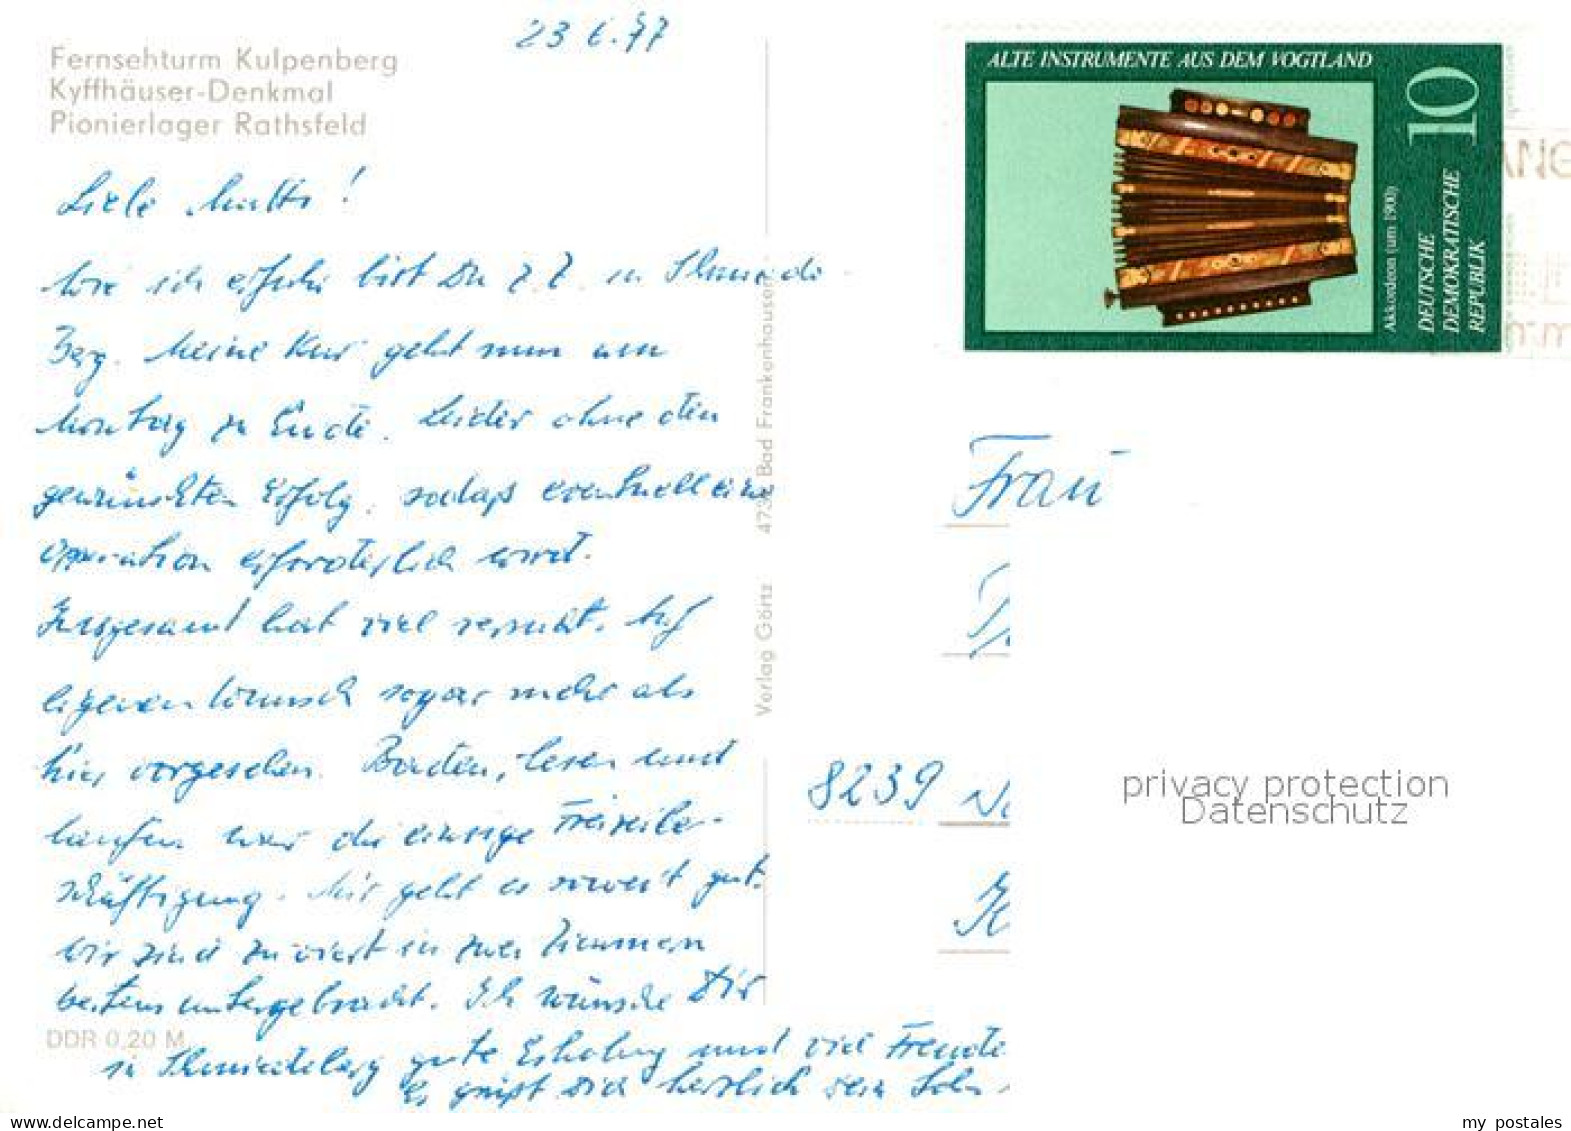 23 6.77
Fernsehturm Kulpenberg
Kyffhäuser-Denkmal
Pionierlager Rathsfeld
Liebe Mutti!
Wie ich erfuhr bist Du z. Z. in Schmiede
Berg. Meine Kur geht nun am
Montag zu Ende. Leider ohne den
gewünschten Erfolg, sodaß eventuell eine
Operation erforderlich wird.
Insgesamt hat viel Auf
eigenen Wunsch sogar mehr als
hier vorgesehen. Baden, lesen und
laufen war die einzige Freizeitbe-
schäftigung. Mir geht es soweit gut.
Wir sind zu viert in zwei Zimmern
bestens untergebracht. Ich wünsche Dir
in Schmiedeberg gute Erholung und viel Freude
Es grüßt Dich herzlich Dein Sohn
DDR 0,20 M
Verlag Görtz 473 Bad Frankenhausen
ALTE INSTRUMENTE AUS DEM VOGTLAND
10
Akkordeon (um 1900)
DEUTSCHE
DEMOKRATISCHE
REPUBLIK
Frau
8239
privacy protection
Datenschutz
delcampe.net
my_postales